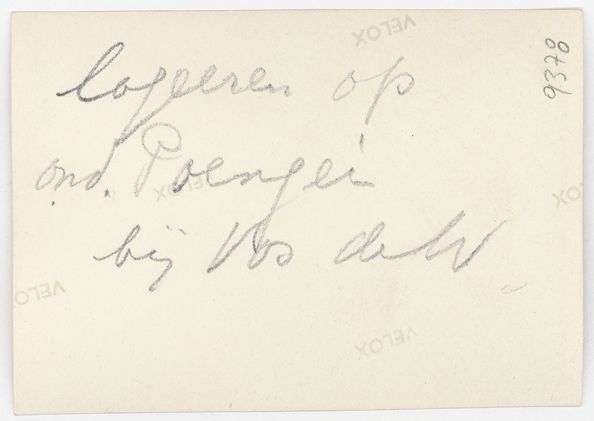 logeeren op
ond. Poengei
bij Vos de W.
9378
VELOX
VELOX
VELOX
VELOX
VELOX